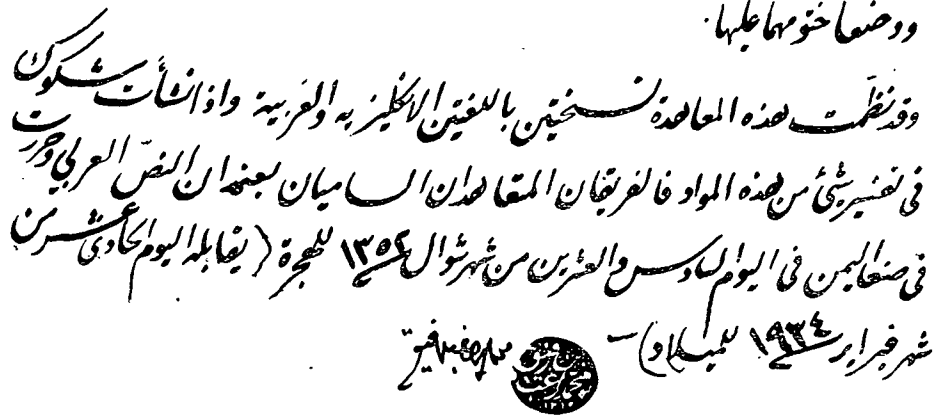 ووضعا ختومهما عليها.
وقد نظمت هذه المعاهدة نسختين باللغتين الانكليزيه والعربية واذا نشأت شكوك
فى تفسير شئ من هذه المواد فالفريقان المتعاهدان الساميان يعتمدان النصّ العربي وحررت
فى صنعا اليمن فى اليوم السادس والعشرين من شهر شوال ١٣٥٢ للهجرة (يقابله اليوم الحادى عشر من
شهر فبراير ١٩٣٤ للميلاد) –